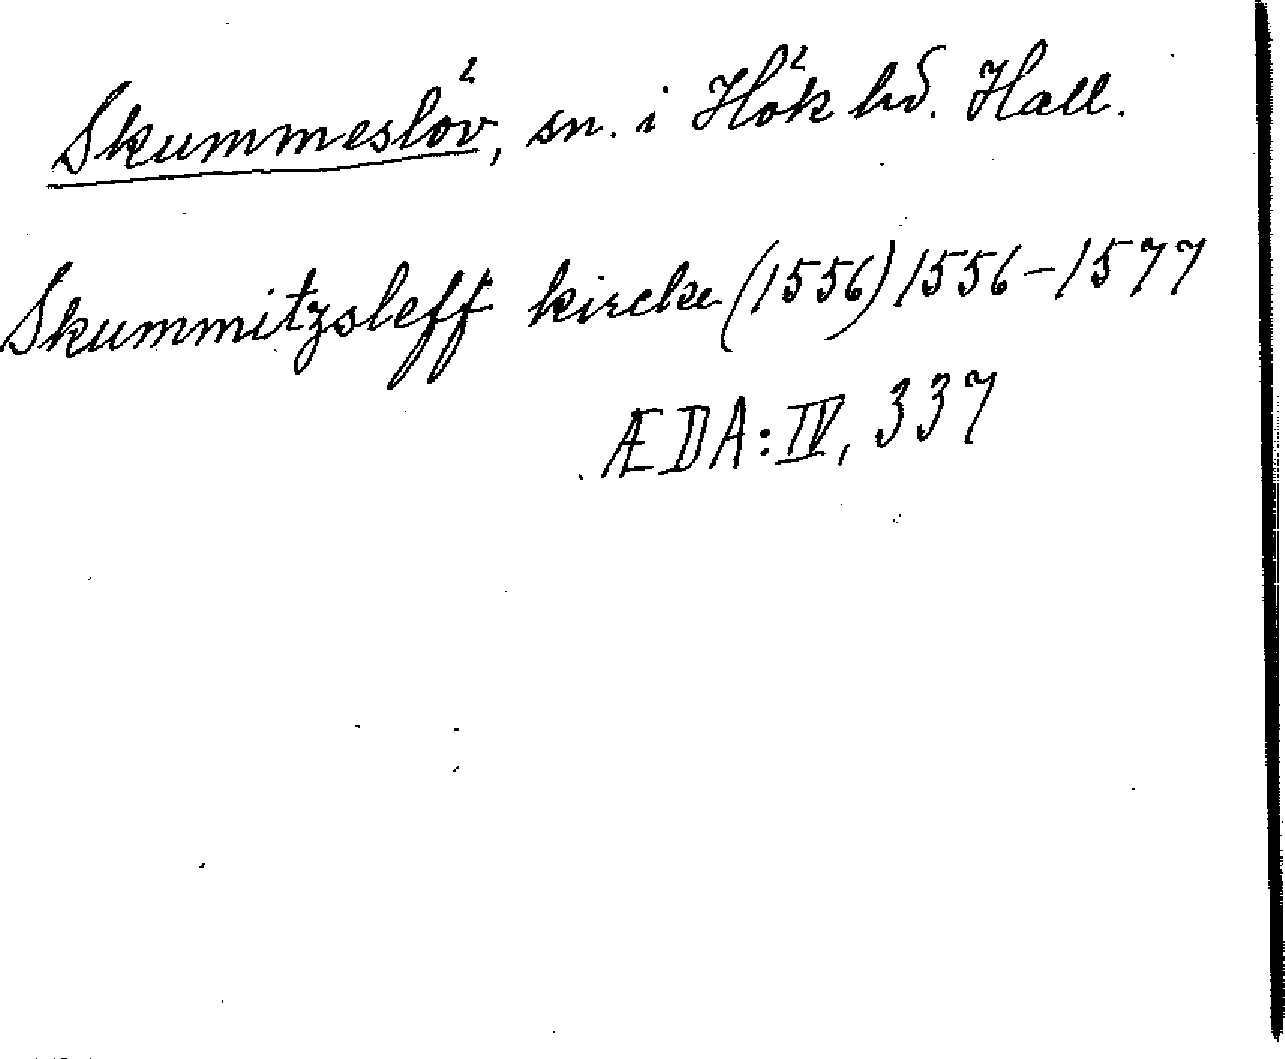 Skummeslöv, sn. i Hök hd. Hall.
Skummitzsleff kircke (1556) 1556-1577
ÆDA: IV, 337